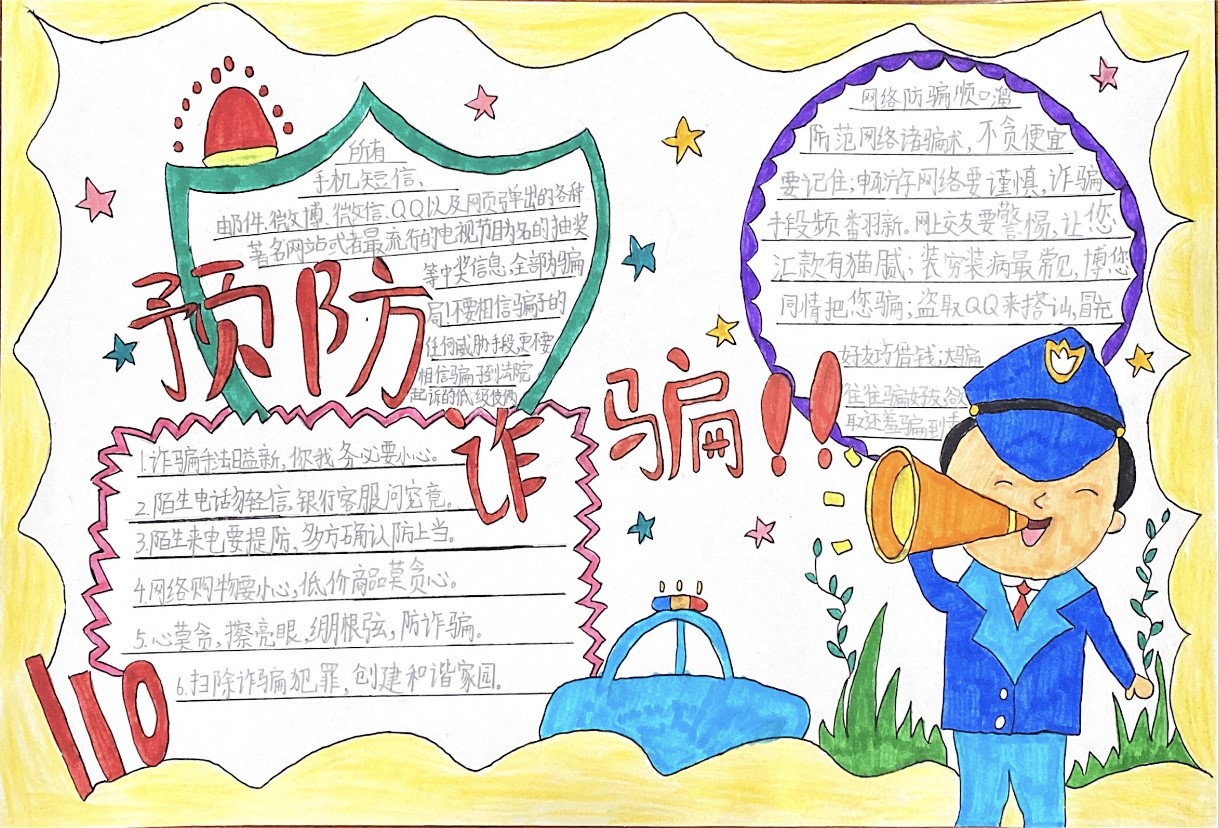 预防
诈骗!!
所有
手机短信、
邮件、微博、微信、QQ以及网页弹出的各种
著名网站或者最流行的电视节目为名的抽奖
等中奖信息,全部防骗
局!不要相信骗子的
任何威胁手段,更不要
相信骗子到法院
起诉的低级伎俩
1.诈骗手法日益新,你我务必要小心。
2.陌生电话勿轻信,银行客服问究竟。
3.陌生来电要提防,多方确认防上当。
4.网络购物要小心,低价商品莫贪心。
5.心莫贪,擦亮眼,绷根弦,防诈骗。
6.扫除诈骗犯罪,创建和谐家园。
110
网络防骗顺口溜
防范网络诸骗术,不贪便宜
要记住;畅游网络要谨慎,诈骗
手段频番翻新。网址交友要警惕,让您
汇款有猫腻;装穷装病最常见,博您
同情把您骗;盗取QQ来搭讪,冒充
好友巧借钱;大骗
骗好友
取还差骗到